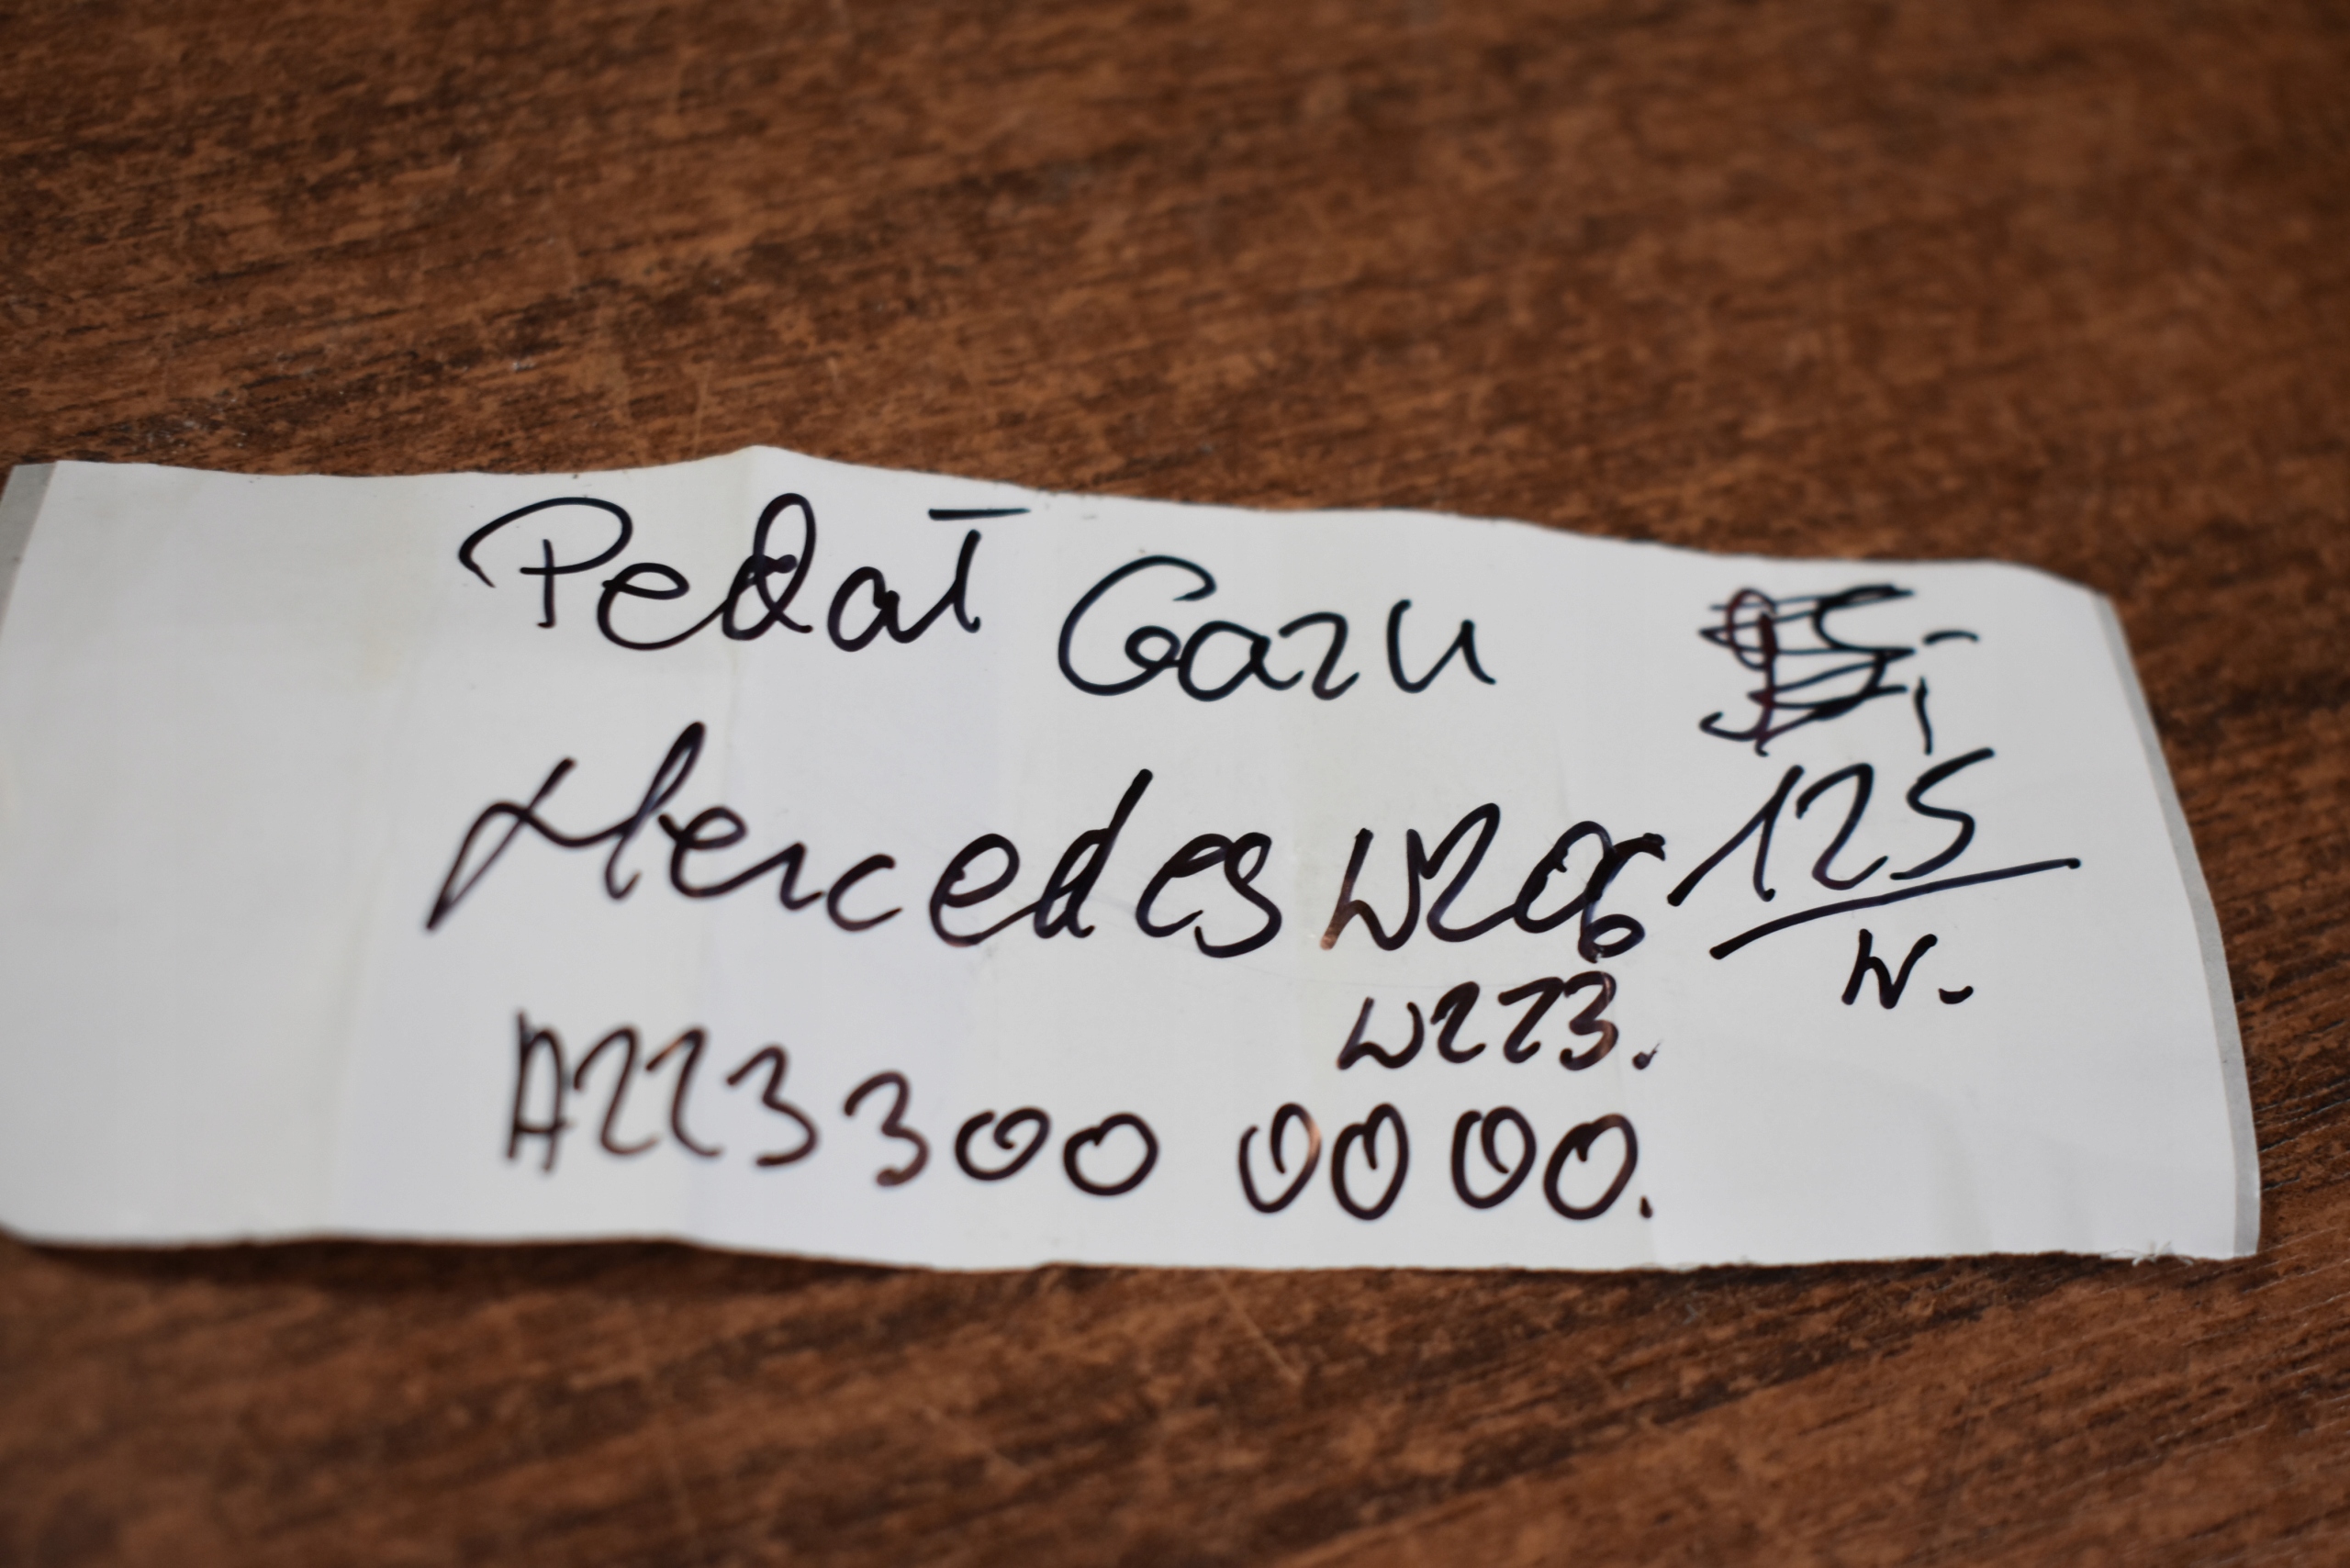 Pedał Gazu
Mercedes W206 125
W223. N.
A223 300 0000.